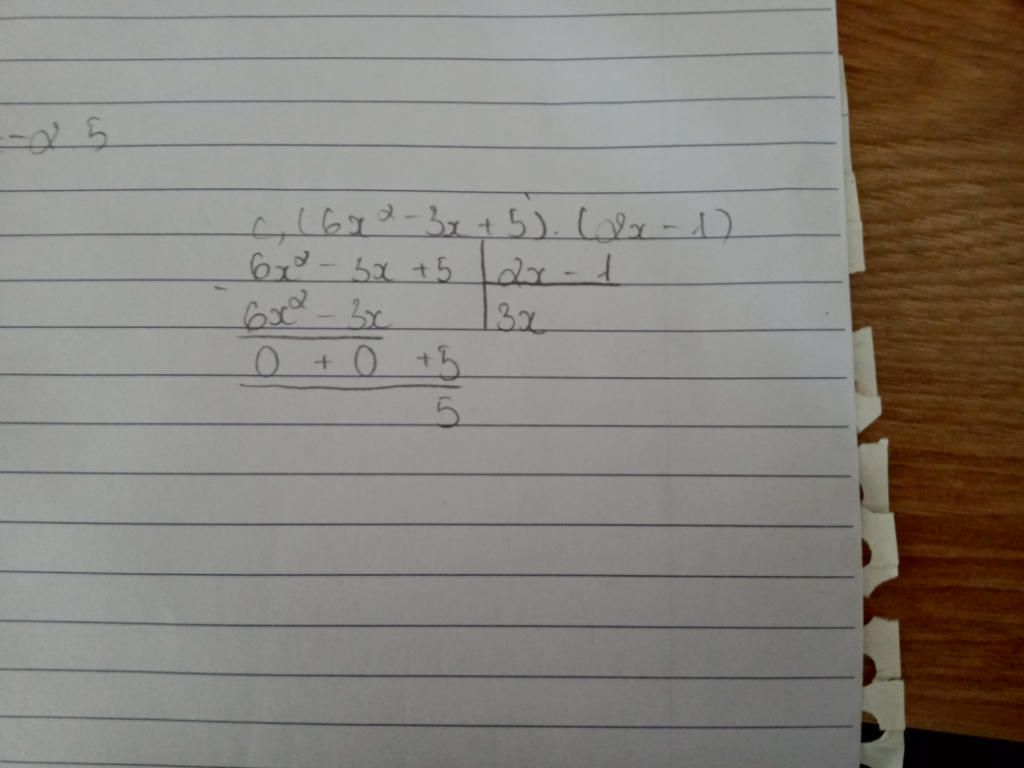 - 2 5
c, (6x² - 3x + 5) . (2x - 1)
6x² - 3x + 5 | 2x - 1
- 6x² - 3x | 3x
0 + 0 + 5
5